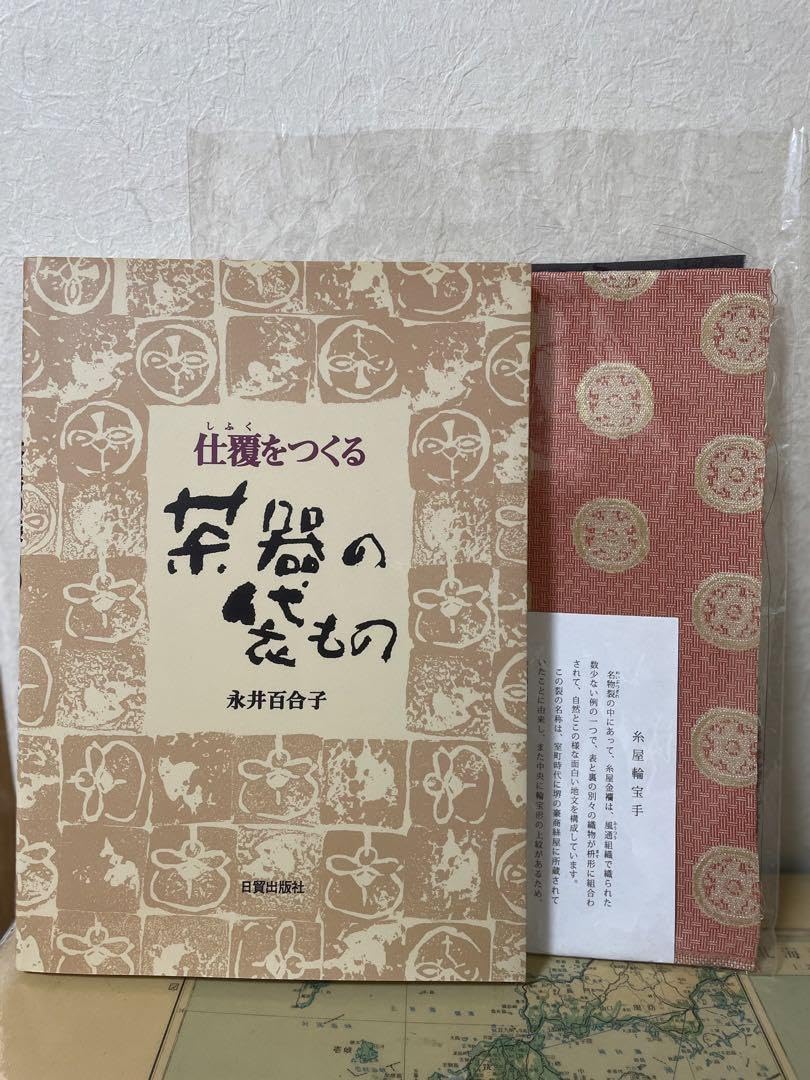 しふく
仕覆をつくる
茶器の
袋もの
永井百合子
日貿出版社
糸屋輪宝手
めいぶつぎれ
名物裂の中にあって、糸屋金襴は、風通組織で織られた
数少ない例の一つで、表と裏の別々の織物が枡形に組合わ
されて、自然とこの様な面白い地文を構成しています。
この裂の名称は、室町時代に堺の豪商絲屋に所蔵されて
いたことに由来し、また中央に輪宝形の上紋があるため、
壱岐